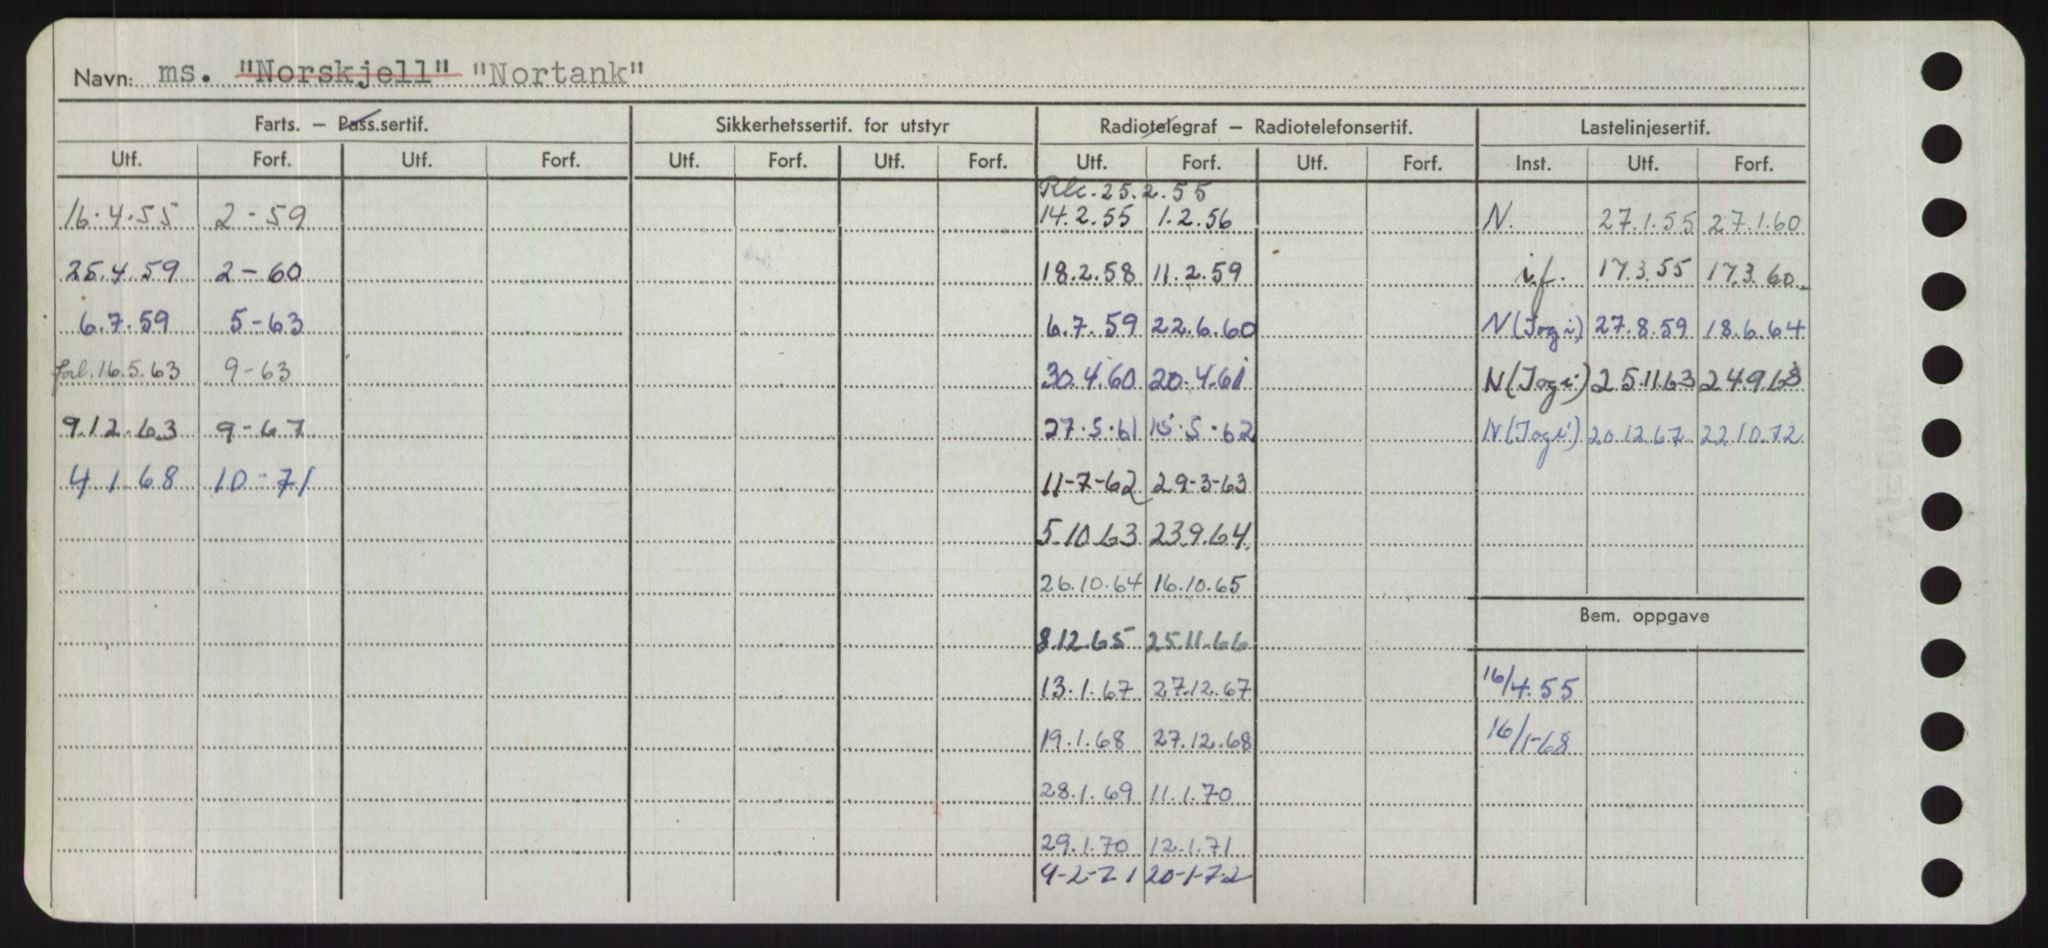 Navn: ms. "Norskjell" "Nortank"
Farts. — Pass.sertif. Sikkerhetssertif. for utstyr Radiotelegraf — Radiotelefonsertif. Lastelinjesertif.
Utf. Forf. Utf. Forf. Utf. Forf. Utf. Forf. Utf. Forf. Utf. Forf. Inst. Utf. Forf.
25.2.55
16.4.55 2-59 14.2.55 1.2.56 N. 27.1.55 27.1.60
25.4.59 2-60 18.2.58 11.2.59 i.f. 17.3.55 17.3.60
6.7.59 5-63 6.7.59 22.6.60 N (Jogi) 27.8.59 18.6.64
forl. 16.5.63 9-63 30.4.60 20.4.61 N (Jogi) 25.11.63 24.9.68
9.12.63 9-67 27.5.61 15.5.62 N (Jogi) 20.12.67 22.10.72
4.1.68 10-71 11-7-62 29-3-63
5.10.63 23.9.64
26.10.64 16.10.65
Bem. oppgave
8.12.65 25.11.66
13.1.67 27.12.67 16/4.55
19.1.68 27.12.68 16/1-68
28.1.69 11.1.70
29.1.70 12.1.71
9-2-71 20-1-72